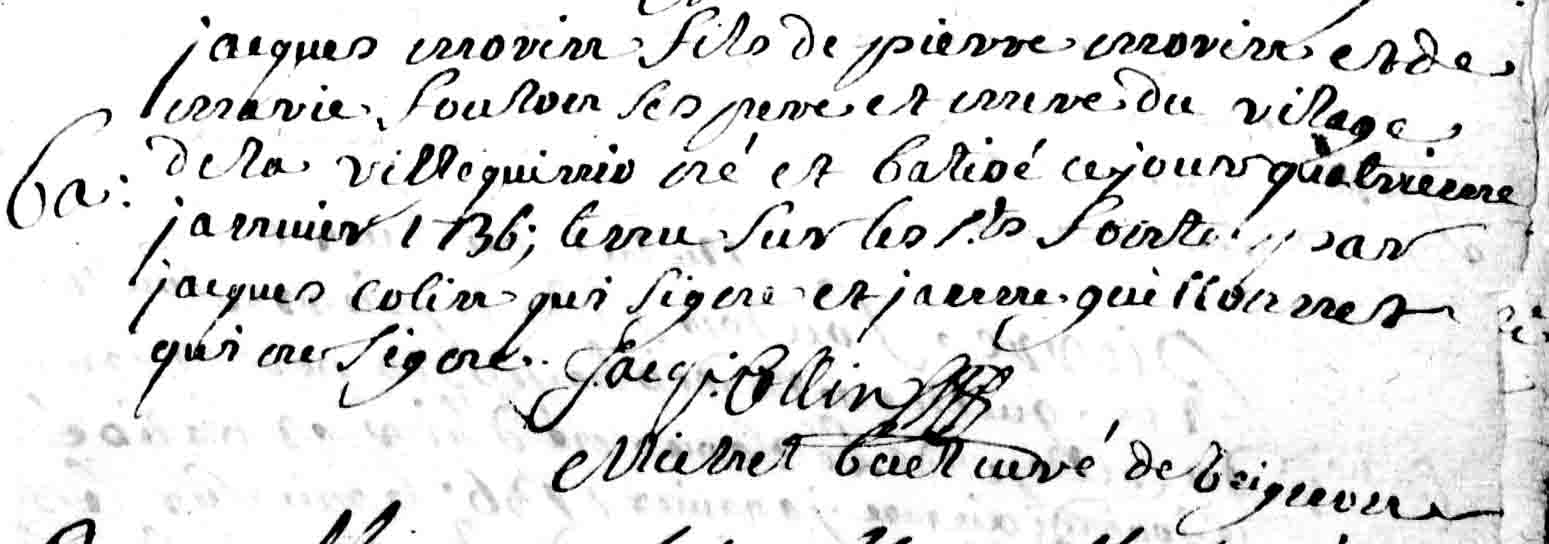 jacques morin fils de pierre morin et de
marie Soulom ses pere et mere du vilage
ba: de la villequinio né et batisé ce jour quatrieme
janvier 1736; tenu sur les S.ts fonts par
jacques colin qui signe et janne guillonnet
qui ne signe. Jacq: Collin
Michel curé de treigneur